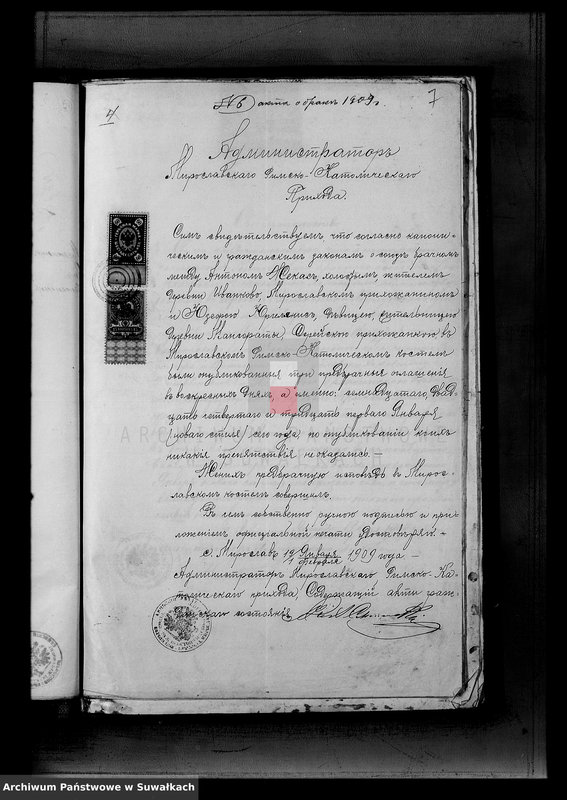 4
№ 6 акта о бракѣ 1909 г.
7
Администраторъ
Мирославскаго Римско-Католическаго
Прихода.
Симъ свидѣтельствуемъ, что согласно канони-
ческимъ и гражданскимъ законамъ о союзѣ брачномъ
между Антономъ Жекасъ, холостымъ жителемъ
деревни Иванково, Мирославскимъ прихожаниномъ
и Юзефою дѣвицею, жительницею
деревни прихожанкою, въ
Мирославскомъ Римско-Католическомъ костелѣ
были опубликованы три предбрачныя оглашенія
въ воскресныхъ дняхъ, а именно: семнадцатаго, двад-
цать четвертаго и тридцать перваго Января
/новаго стиля/ сего года, по опубликованіи коихъ
никакія препятствія не оказались. —
Женихъ предбрачную исповѣдь въ Миро-
славскомъ костелѣ совершилъ.
Въ семъ собственно ручною подписью и при-
ложеніемъ официальной печати удостовѣряю. —
с. Мирославъ 19 Января / 1 Февраля 1909 года —
Администраторъ Мирославскаго Римско-Ка-
толическаго прихода, Содержащій акты граж-
данскаго состоянія
Archiwum Państwowe w Suwałkach